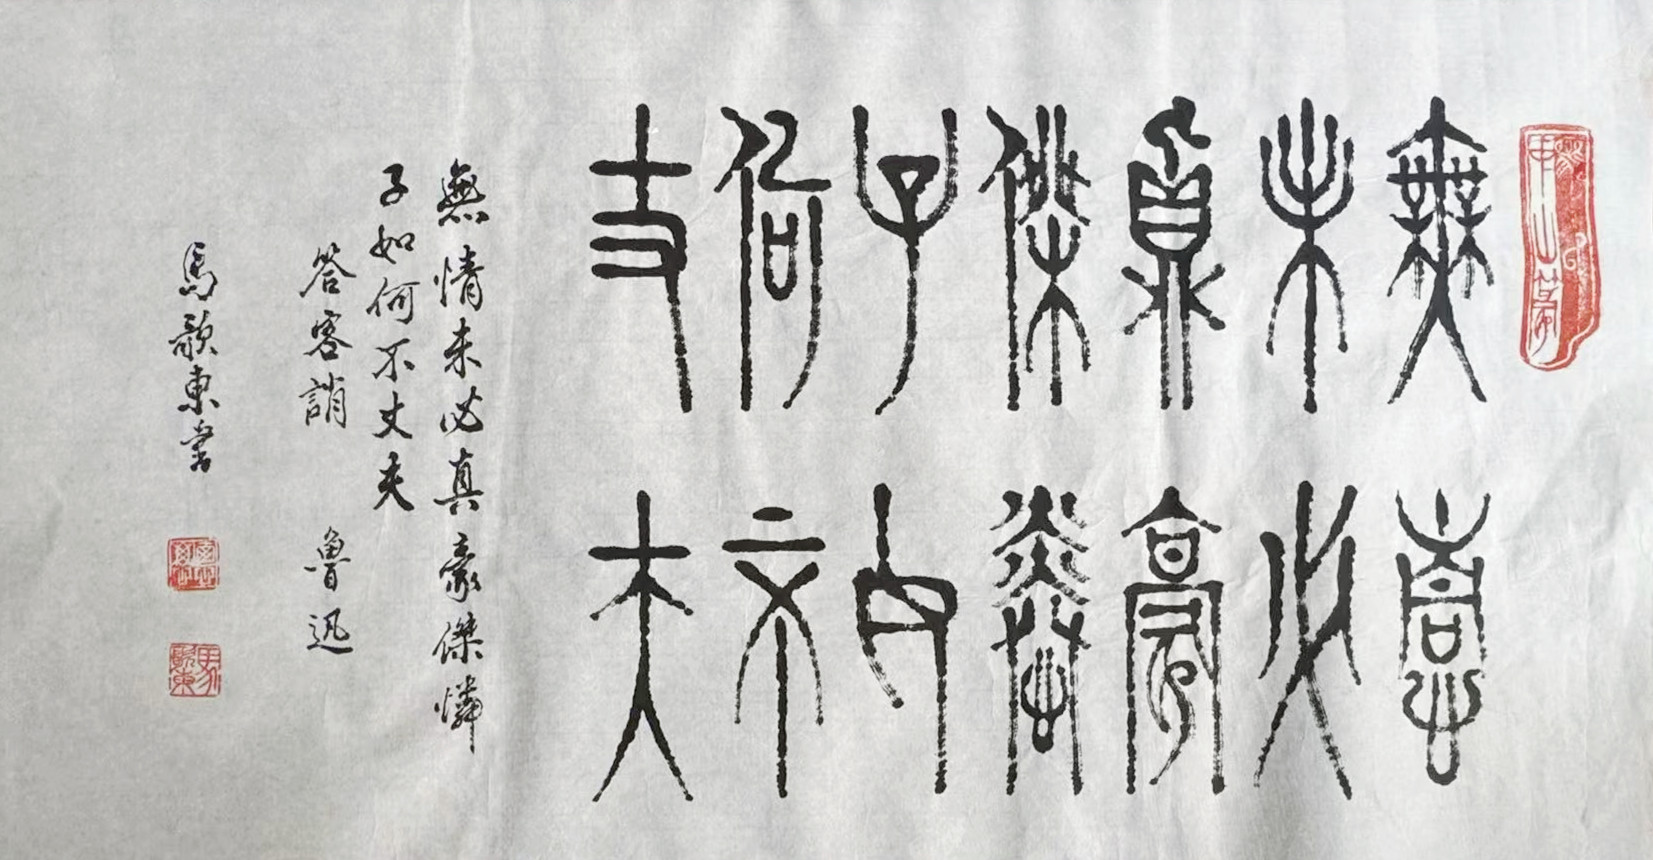 無情
未必
真豪
傑憐
子如
何不
丈夫
無情未必真豪傑憐
子如何不丈夫
答客誚 魯迅
馬歌東書
馬歌東